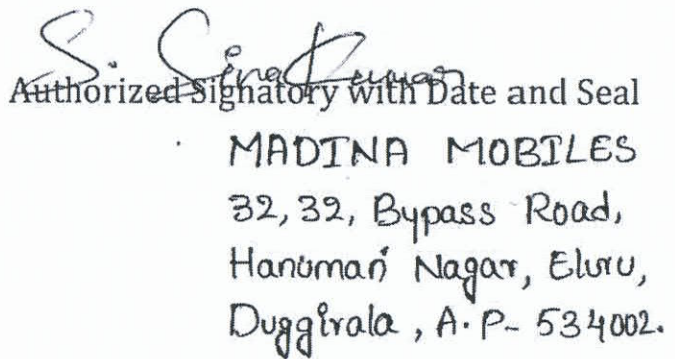 S. Siva Kumar
Authorized Signatory with Date and Seal
MADINA MOBILES
32, 32, Bypass Road,
Hanuman Nagar, Eluru,
Duggirala, A.P- 534002.